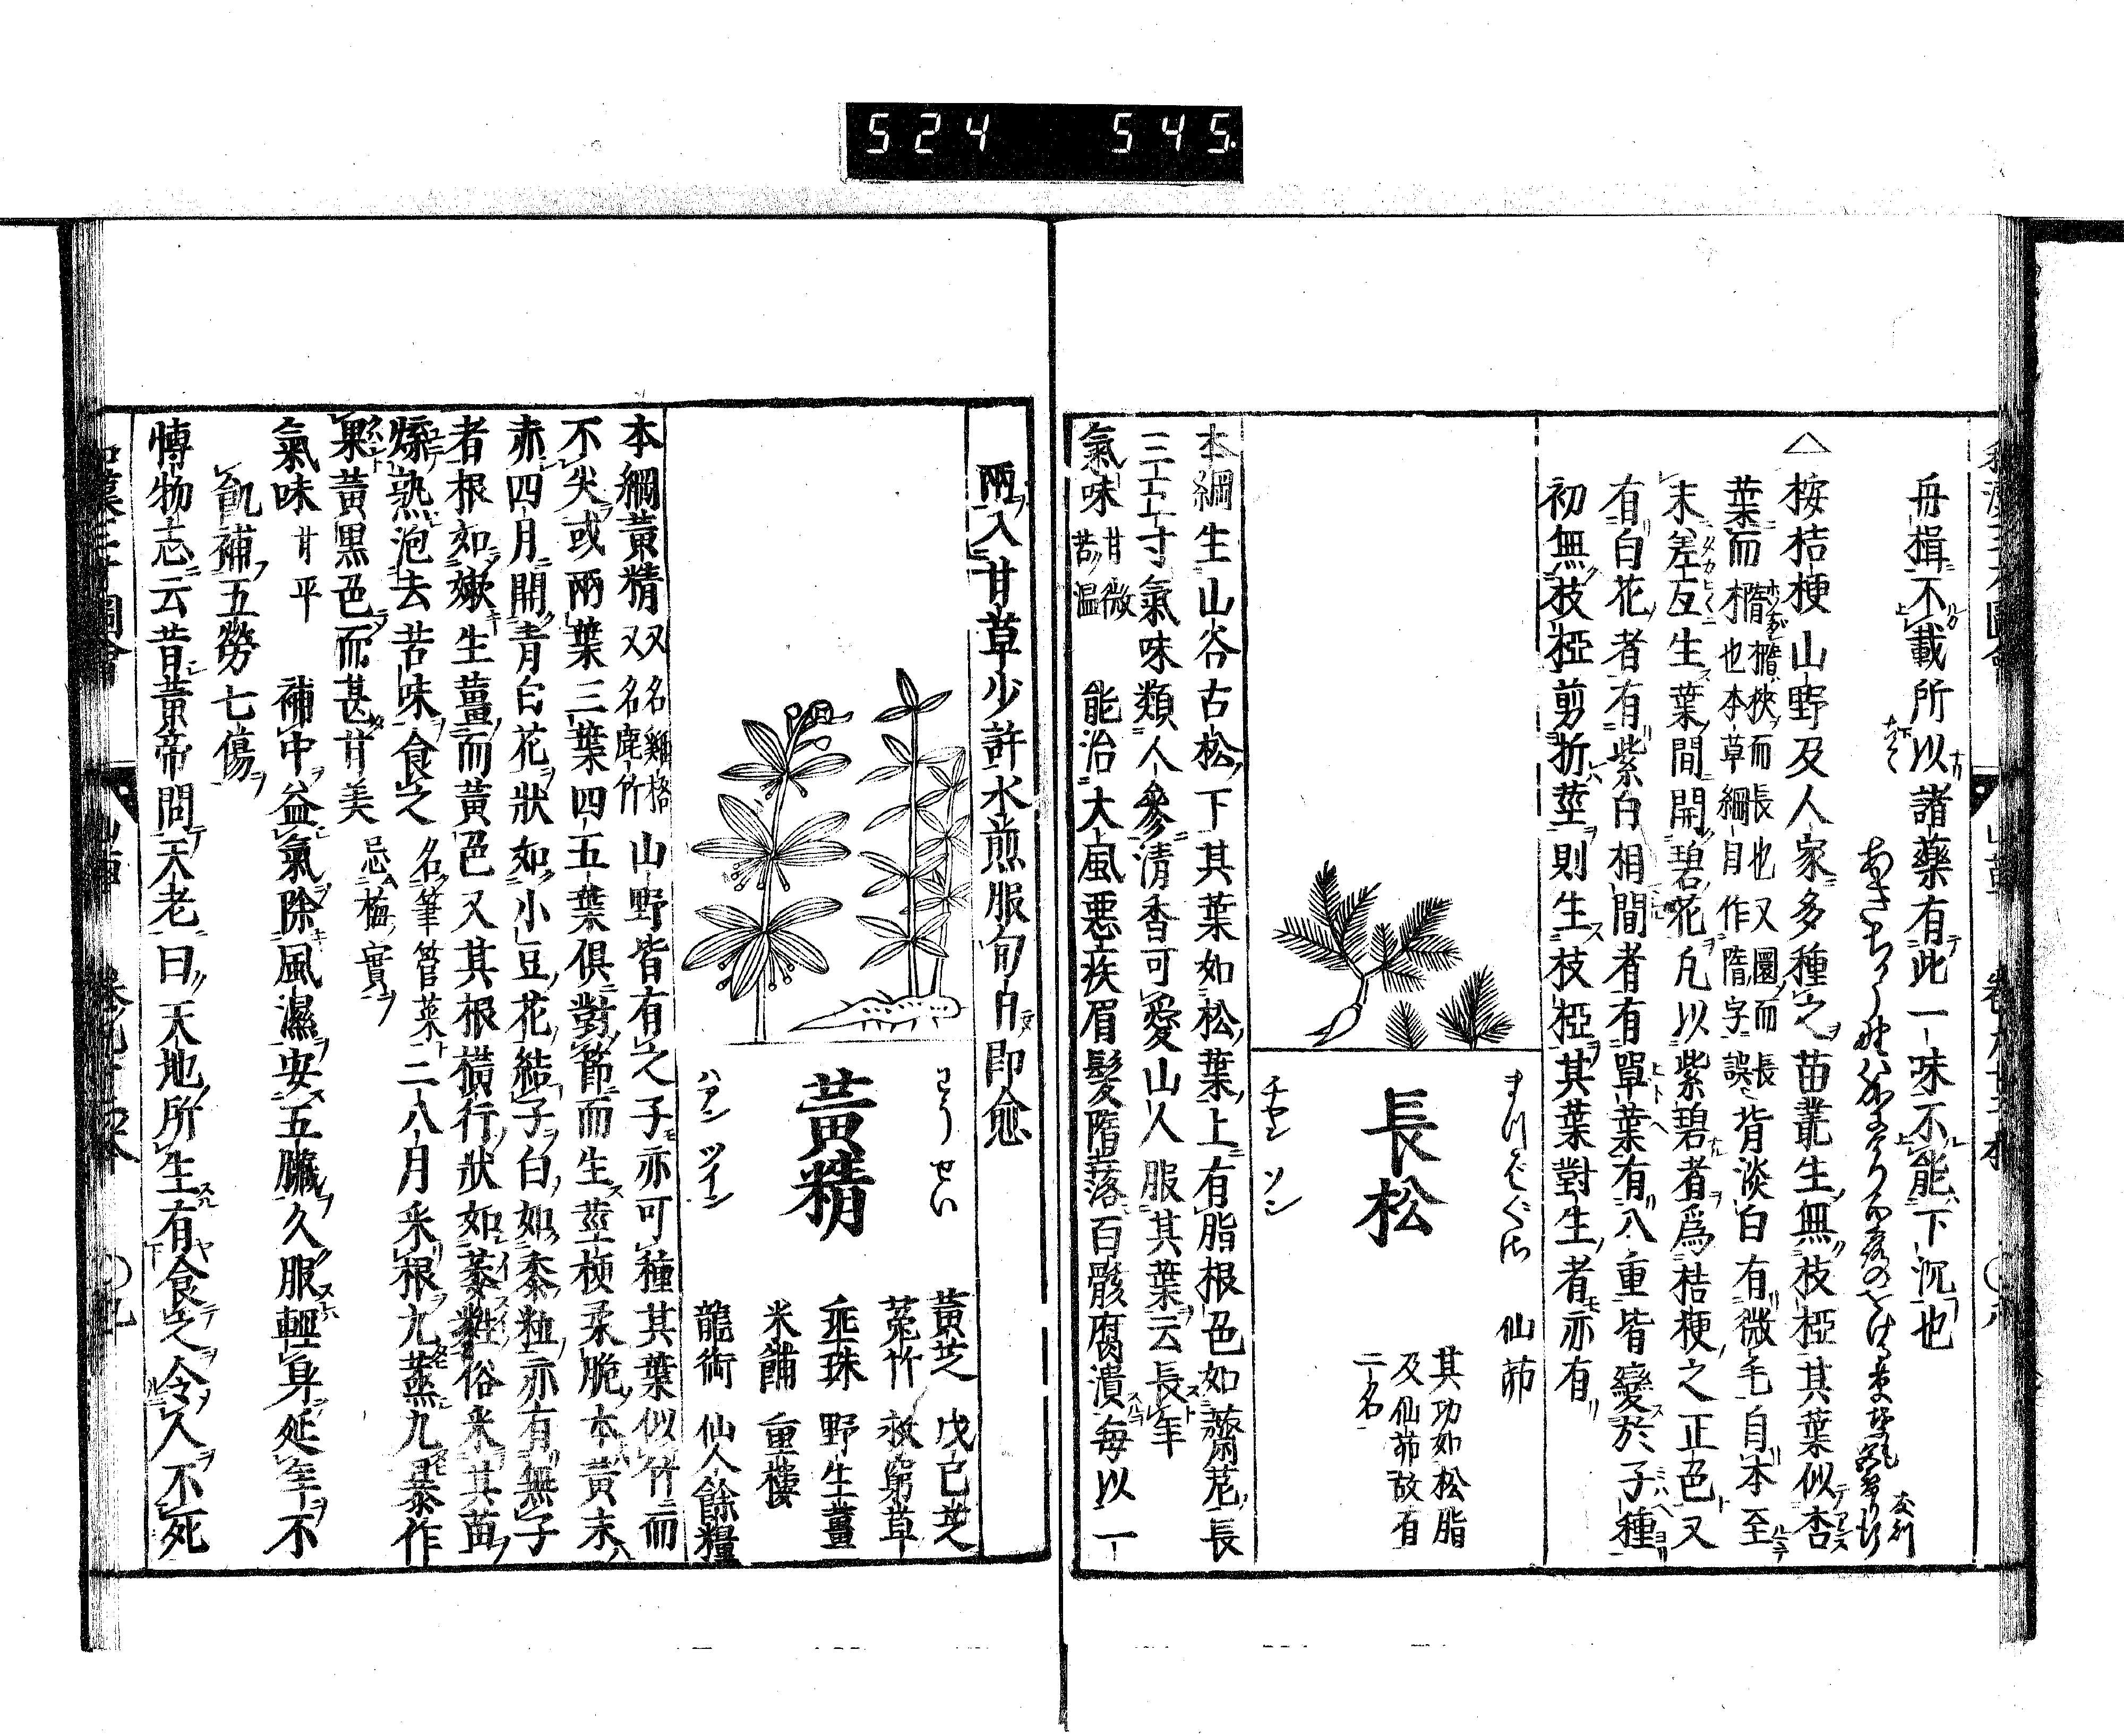 524 545
舟楫不載所以諸藥有此一味不能下沉也
△按桔梗山野及人家多種之苗叢生無枝椏其葉似杏
葉而橢
橢狹而長也又圜而長
也本草綱目作隋字誤
背淡白有微毛自本至
末差互生葉間開碧花凡以紫碧者爲桔梗之正色又
有白花者有紫白相間者有單葉有八重皆變於子種
初無枝椏剪折莖則生枝椏其葉對生者亦有
長松
チヤン ソン
仙茆
其功如松脂
及仙茆故有
二名
本綱生山谷古松下其葉如松葉上有脂根色如薺苨長
三五寸氣味類人參清香可愛山人服其葉云長年
氣味
甘微
苦温
能治大風惡疾眉髮隋落百骸腐潰每以一
兩入甘草少許水煎服旬日即愈
黃精
わう せい
ハアン ツイン
黃芝 戊己芝
菟竹 救窮草
垂珠 野生薑
米餔 重樓
龍銜 仙人餘糧
本綱黃精
又名雞格
又名鹿竹
山野皆有之子亦可種其葉似竹而
不尖或兩葉三葉四五葉俱對節而生莖梗柔脆本黃末
赤四月開青白花狀如小豆花結子白如黍粒亦有無子
者根如嫰生薑而黃色又其根橫行狀如萎蕤俗采其苗
煠熟泡去苦味食之
名筆管菜
二八月采根九蒸九暴作
果黃黑色而甚甘美
忌梅實
氣味
甘平
補中益氣除風濕安五臟久服輕身延年不
飢補五勞七傷
博物志云昔黃帝問天老曰天地所生有食之令人不死